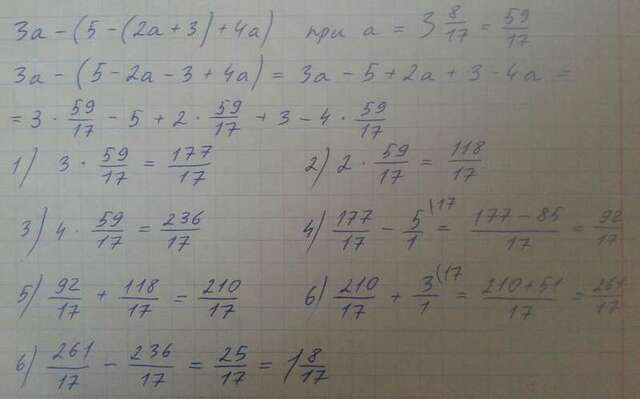 3a - (5 - (2a + 3) + 4a) при a = 3 8/17 = 59/17
3a - (5 - 2a - 3 + 4a) = 3a - 5 + 2a + 3 - 4a =
= 3 · 59/17 - 5 + 2 · 59/17 + 3 - 4 · 59/17
1) 3 · 59/17 = 177/17 2) 2 · 59/17 = 118/17
3) 4 · 59/17 = 236/17 4) 177/17 - 5/1 \17 = 177 - 85/17 = 92/17
5) 92/17 + 118/17 = 210/17 6) 210/17 + 3/1 (17 = 210 + 51/17 = 261/17
6) 261/17 - 236/17 = 25/17 = 1 8/17